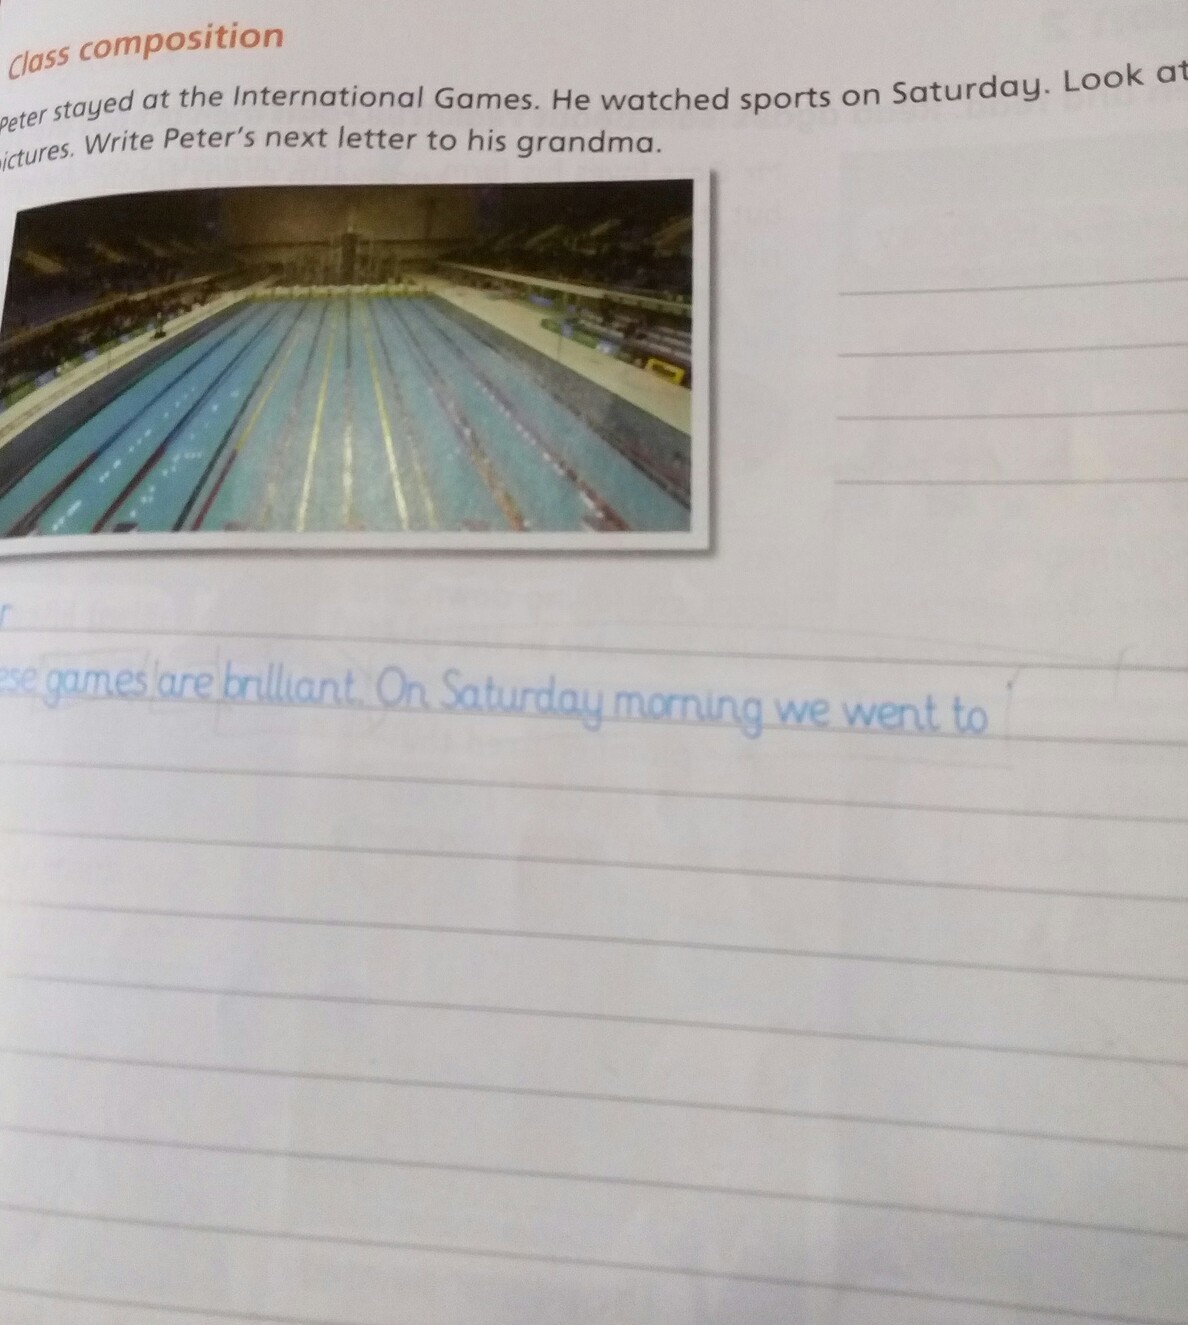 Class composition
Peter stayed at the International Games. He watched sports on Saturday. Look at
ictures. Write Peter's next letter to his grandma.
r
ese games are brilliant. On Saturday morning we went to